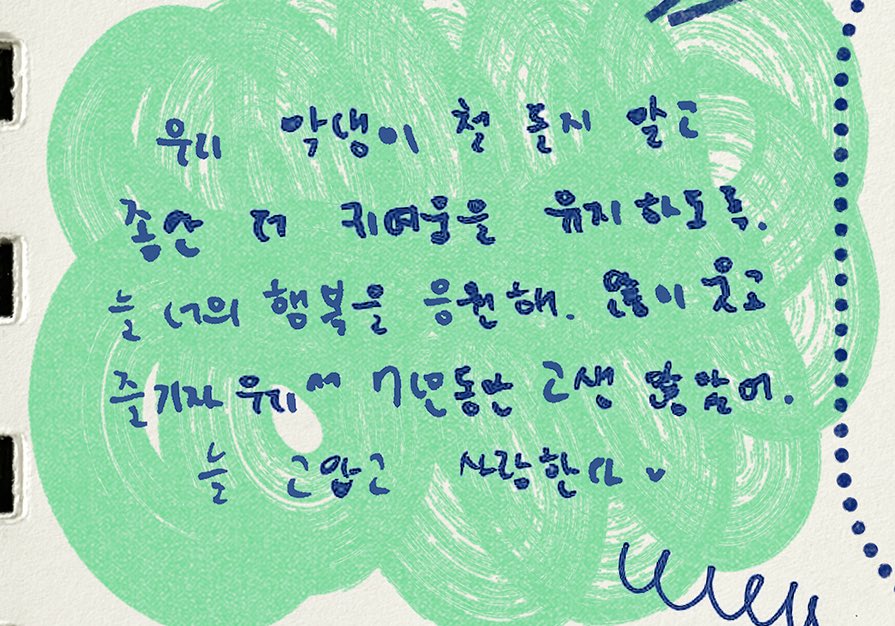 우리 막생이 철 들지 말고
좀만 더 귀여움을 유지하도록.
늘 너의 행복을 응원해. 많이 웃고
즐기자 우리^^ 7년동안 고생 많았어.
늘 고맙고 사랑한다